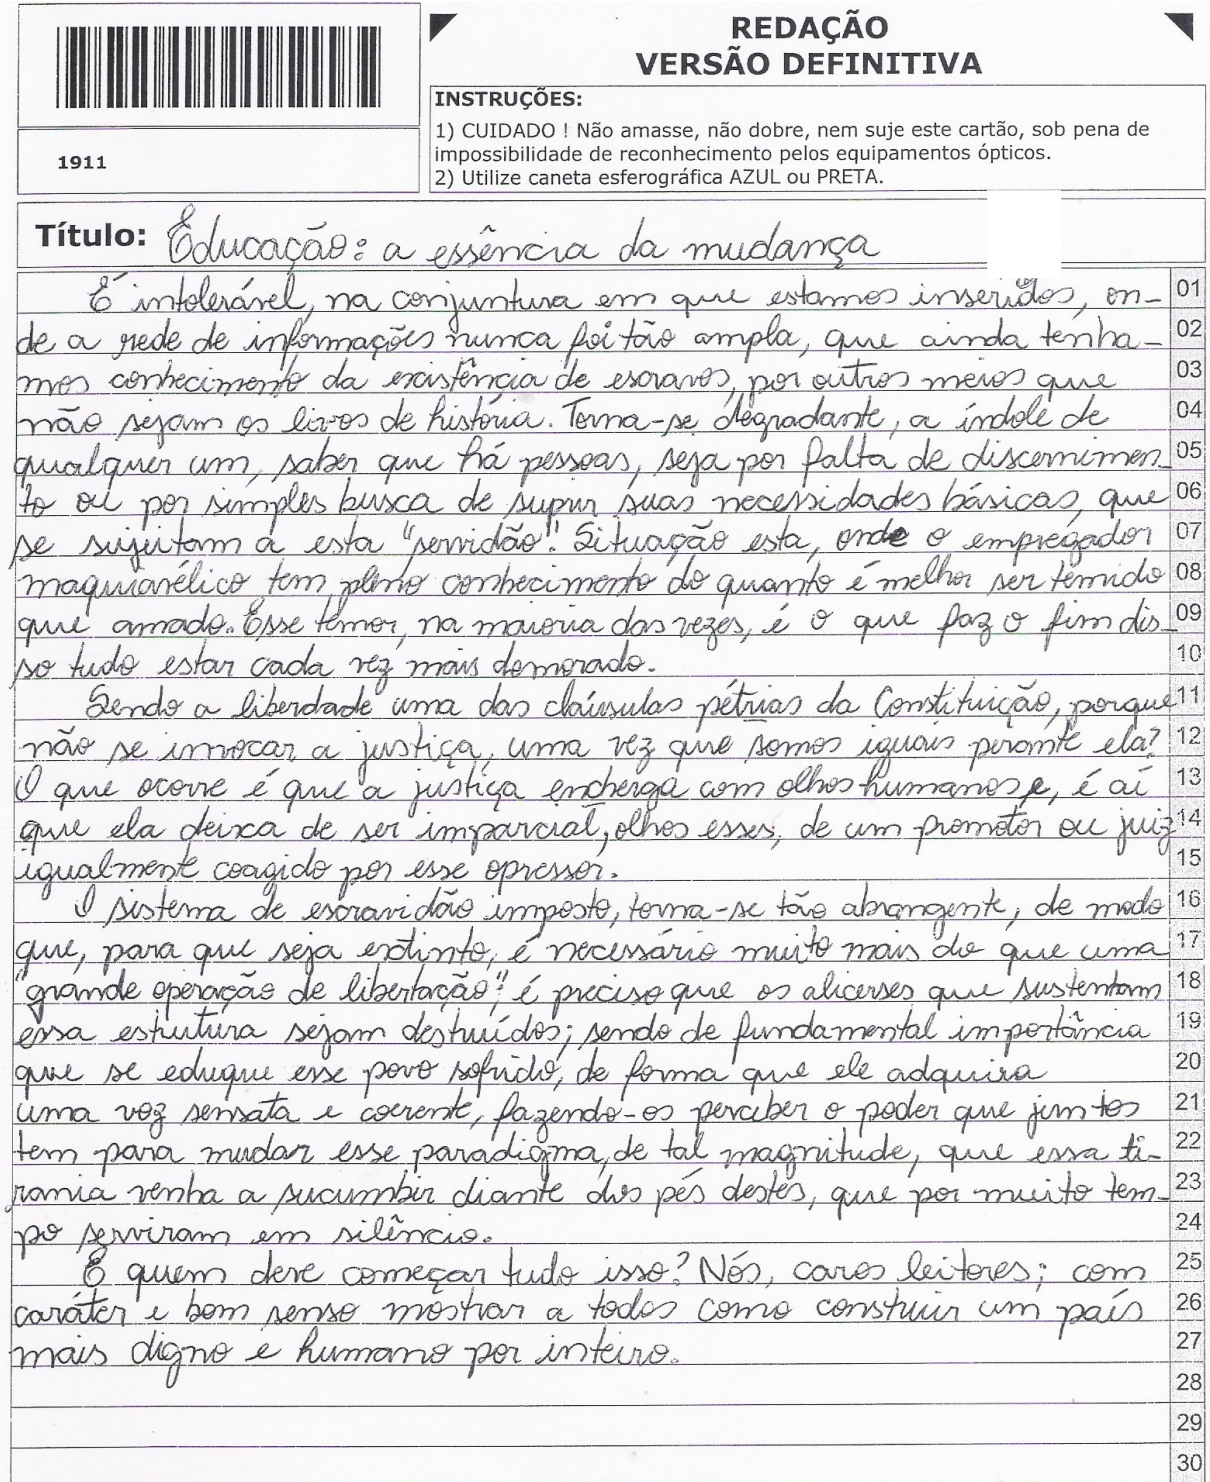 REDAÇÃO
VERSÃO DEFINITIVA
INSTRUÇÕES:
1) CUIDADO ! Não amasse, não dobre, nem suje este cartão, sob pena de
impossibilidade de reconhecimento pelos equipamentos ópticos.
2) Utilize caneta esferográfica AZUL ou PRETA.
1911
Título: Educação: a essência da mudança
É intolerável, na conjuntura em que estamos inseridos, on- 01
de a rede de informações nunca foi tão ampla, que ainda tenha- 02
mos conhecimento da existência de escravos, por outros meios que 03
não sejam os livros de história. Torna-se degradante, a índole de 04
qualquer um, saber que há pessoas, seja por falta de discernimen- 05
to ou por simples busca de suprir suas necessidades básicas, que 06
se sujeitam a esta "servidão". Situação esta, onde o empregador 07
maquiavélico tem pleno conhecimento do quanto é melhor ser temido 08
que amado. Esse temor, na maioria das vezes, é o que faz o fim dis- 09
so tudo estar cada vez mais demorado. 10
Sendo a liberdade uma das cláusulas pétrias da Constituição, porque 11
não se invocar a justiça, uma vez que somos iguais perante ela? 12
O que ocorre é que a justiça encherga com olhos humanos e, é aí 13
que ela deixa de ser imparcial, olhos esses, de um promotor ou juiz 14
igualmente coagido por esse opressor. 15
O sistema de escravidão imposto, torna-se tão abrangente, de modo 16
que, para que seja extinto, é necessário muito mais do que uma 17
"grande operação de libertação": é preciso que os alicerses que sustentam 18
essa estrutura sejam destruídos; sendo de fundamental importância 19
que se eduque esse povo sofrido, de forma que ele adquira 20
uma voz sensata e coerente, fazendo-os perceber o poder que juntos 21
tem para mudar esse paradigma, de tal magnitude, que essa ti- 22
rania venha a sucumbir diante dos pés destes, que por muito tem- 23
po serviram em silêncio. 24
E quem deve começar tudo isso? Nós, caros leitores; com 25
caráter e bom senso mostrar a todos como construir um país 26
mais digno e humano por inteiro. 27
28
29
30